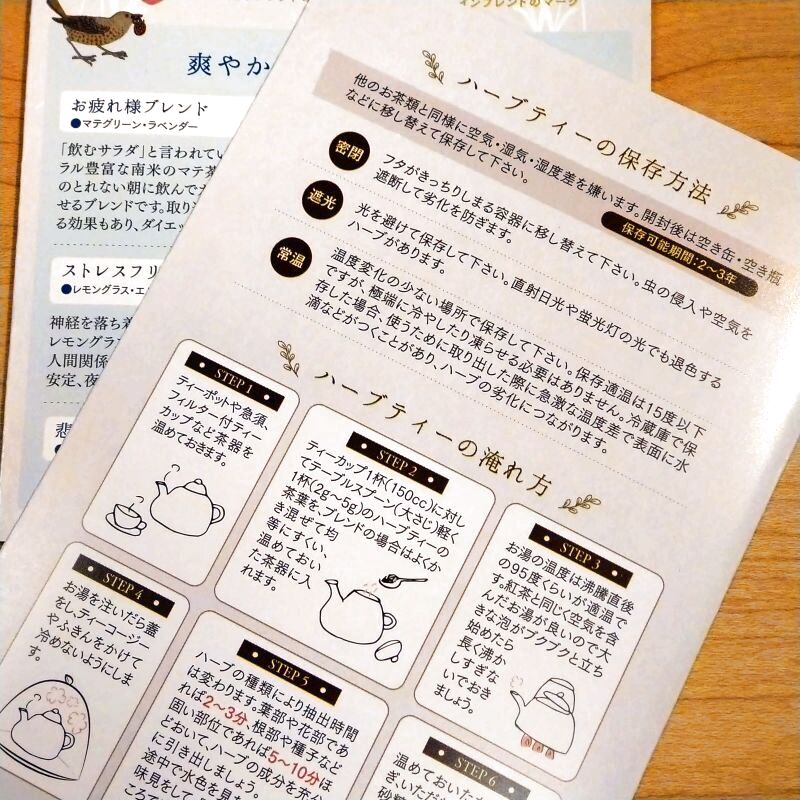 インブレンドのマーク
爽やか
お疲れ様ブレンド
マテグリーン・ラベンダー
「飲むサラダ」と言われてい
ラル豊富な南米のマテ茶
のとれない朝に飲んで
せるブレンドです。取り
る効果もあり、ダイエッ
ストレスフリ
レモングラス・エ
神経を落ち着
レモングラ
人間関係
安定、夜
悲
ハーブティーの保存方法
他のお茶類と同様に空気・湿気・湿度差を嫌います。開封後は空き缶・空き瓶
などに移し替えて保存して下さい。
保存可能期間:2〜3年
密閉
フタがきっちりしまる容器に移し替えて下さい。虫の侵入や空気を
遮断して劣化を防ぎます。
遮光
光を避けて保存して下さい。直射日光や蛍光灯の光でも退色する
ハーブがあります。
常温
温度変化の少ない場所で保存して下さい。保存適温は15度以下
ですが、極端に冷やしたり凍らせる必要はありません。冷蔵庫で保
存した場合、使うために取り出した際に急激な温度差で表面に水
滴などがつくことがあり、ハーブの劣化につながります。
ハーブティーの淹れ方
STEP 1
ティーポットや急須、
フィルター付ティー
カップなど茶器を
温めておきます。
STEP 2
ティーカップ1杯(150cc)に対し
てテーブルスプーン(大さじ)軽く
1杯(2g〜5g)のハーブティーの
茶葉を、ブレンドの場合はよくか
き混ぜて均
等にすくい、
温めておい
た茶器に入
れます。
STEP 3
お湯の温度は沸騰直後
の95度くらいが適温で
す。紅茶と同じく空気を含
んだお湯が良いので大
きな泡がブクブクと立ち
始めたら
長く沸か
しすぎな
いでおき
ましょう。
STEP 4
お湯を注いだら蓋
をし、ティーコージー
やふきんをかけて
冷めないようにしま
す。
STEP 5
ハーブの種類により抽出時間
は変わります。葉部や花部であ
れば2〜3分、根部や種子など
固い部位であれば5〜10分ほ
どおいて、ハーブの成分を充分
に引き出しましょう。
途中で水色を見た
味見をして、
ころで
STEP 6
温めておいたカ
ぎ、いただ
砂糖